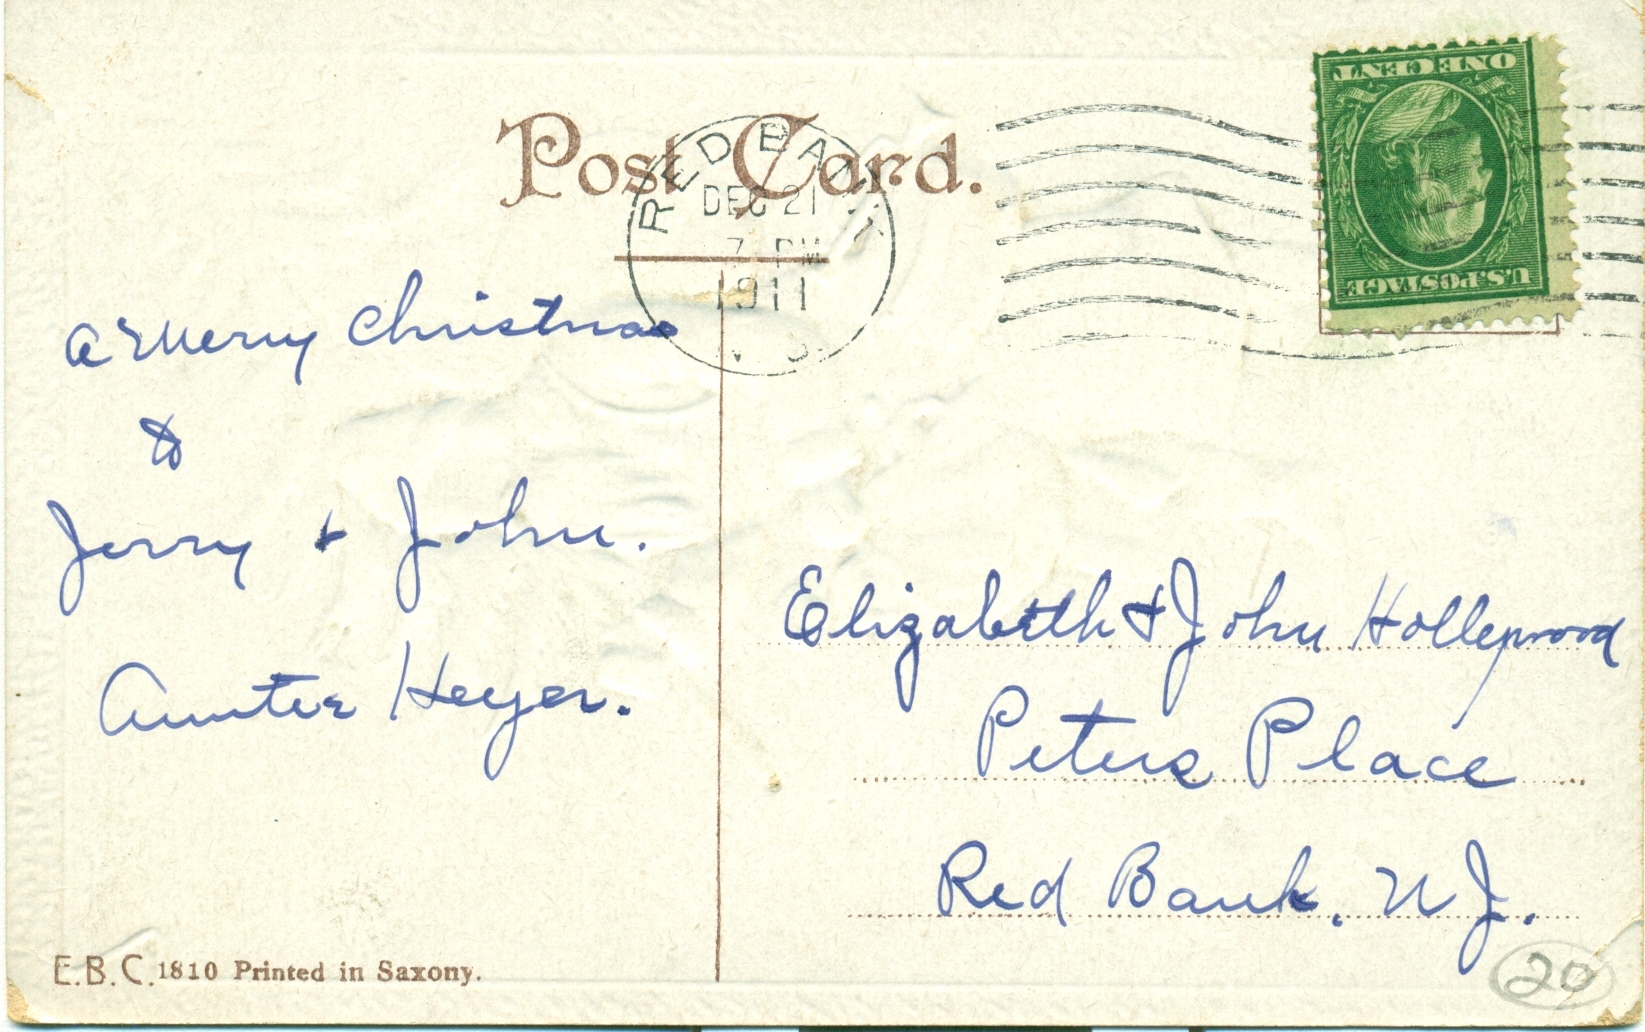 Post Card.
RED BANK
DEC 21
7 PM
1911
N. J.
ONE CENT
U.S. POSTAGE
A Merry Christmas
to
Jerry + John.
Auntie Heyer.
Elizabeth & John
Peters Place
Red Bank. N J.
E.B.C. 1810 Printed in Saxony.
20